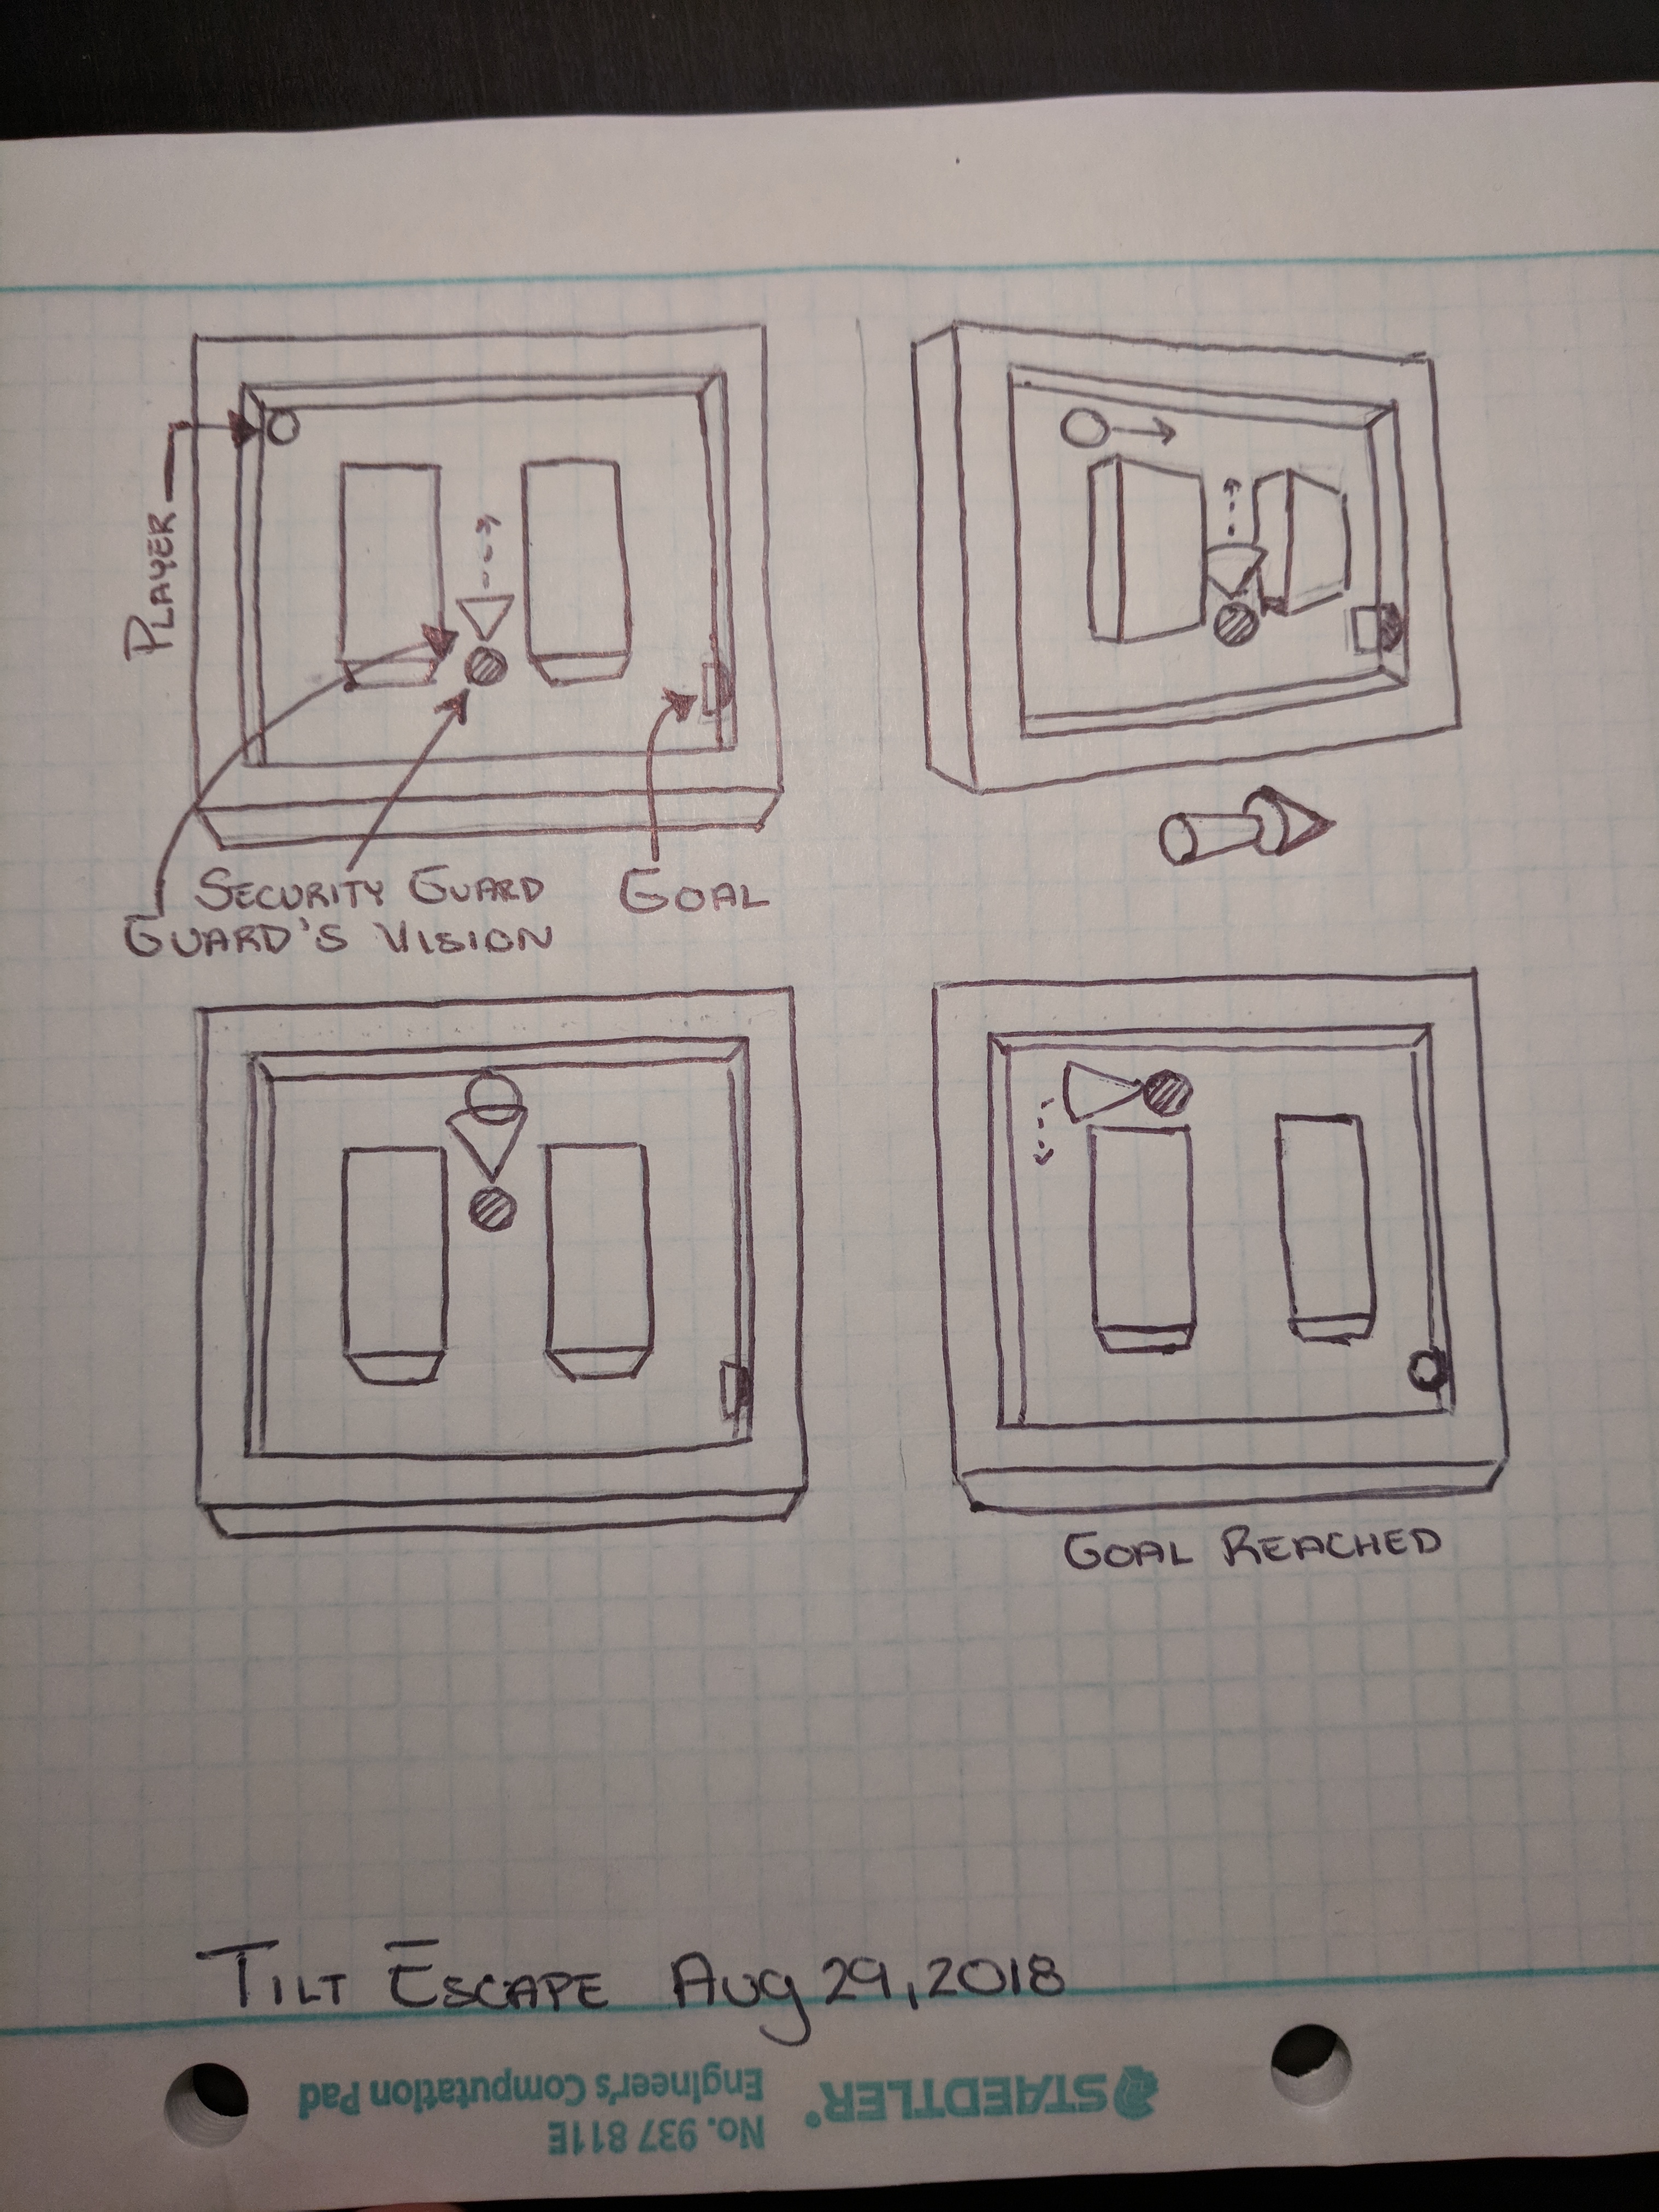 PLAYER
SECURITY GUARD
GUARD'S VISION
GOAL
GOAL REACHED
TILT ESCAPE AUG 29, 2018
STAEDTLER®
No. 937 811E
Engineer's Computation Pad